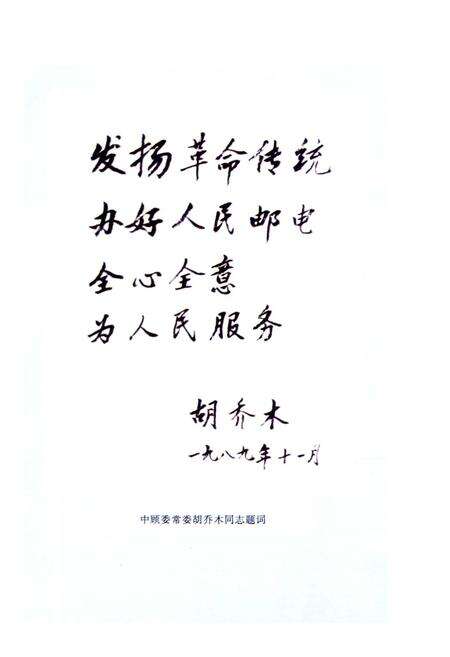 发扬革命传统
办好人民邮电
全心全意
为人民服务
胡乔木
一九八九年十一月
中顾委常委胡乔木同志题词